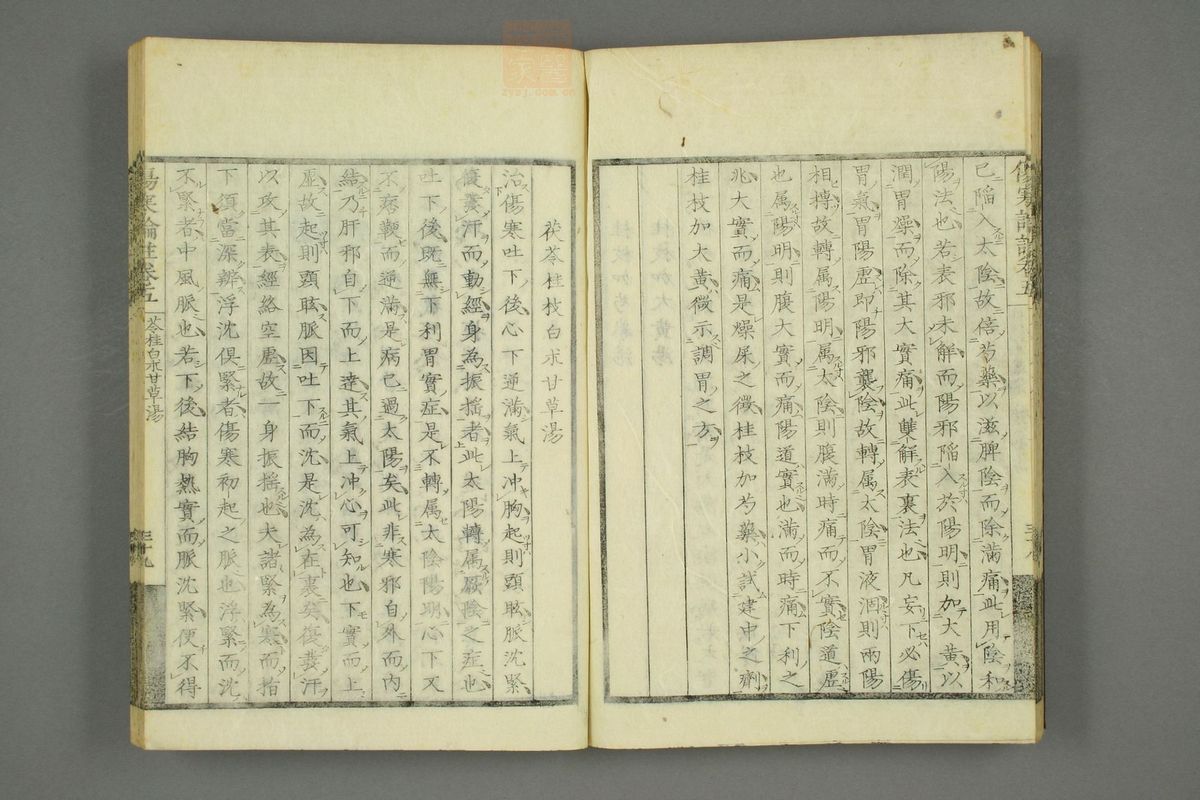 已陷入太陰故倍芍藥以滋脾陰而除滿痛此用陰和
陽法也若表邪未解而陽邪陷入於陽明則加大黃以
潤胃燥而除其大實痛此雙解表裏法也凡妄下必傷
胃氣胃陽虛即陽邪襲陰故轉属太陰胃液涸則兩陽
相搏故轉属陽明属太陰則腹滿時痛而不實陰道虛
也属陽明則腹大實而痛陽道實也滿而時痛下利之
兆大實而痛是燥屎之徵桂枝加芍藥小試建中之劑
桂枝加大黃微示調胃之方
茯苓桂枝白朮甘草湯
治傷寒吐下後心下逆滿氣上冲胸起則頭眩脈沈緊
復發汗而動經身為振搖者此太陽轉属厥陰之症也
吐下後既無下利胃實症是不轉属太陰陽明心下又
不痞鞕而逆滿是病已過太陽矣此非寒邪自外而內
結乃肝邪自下而上逹其氣上冲心可知也下實而上
虛故起則頭眩脈因吐下而沈是沈為在裏矣復發汗
以攻其表經絡空虛故一身振搖也夫諸緊為寒而指
下須當深辨浮沈俱緊者傷寒初起之脈也浮緊而沈
不緊者中風脈也若下後結胸熱實而脈沈緊便不得
傷寒論註卷五
苓桂白朮甘草湯
三十九
zysj.com.cn